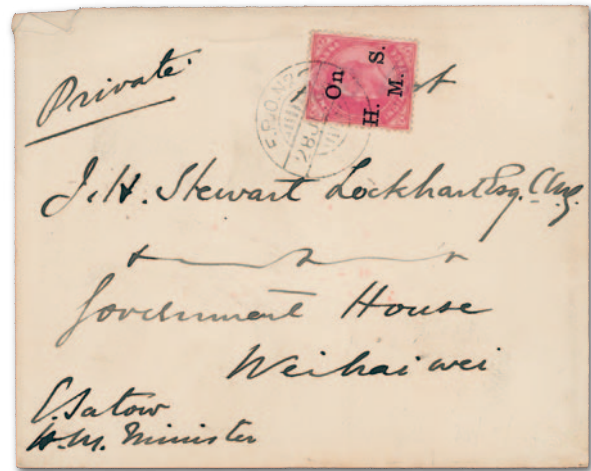 Private
On
S.
H.
M.
F.P.O. N
J.H. Stewart Lockhart Esq. CMG.
Government House
Weihai wei
E. Satow
H.M. Minister